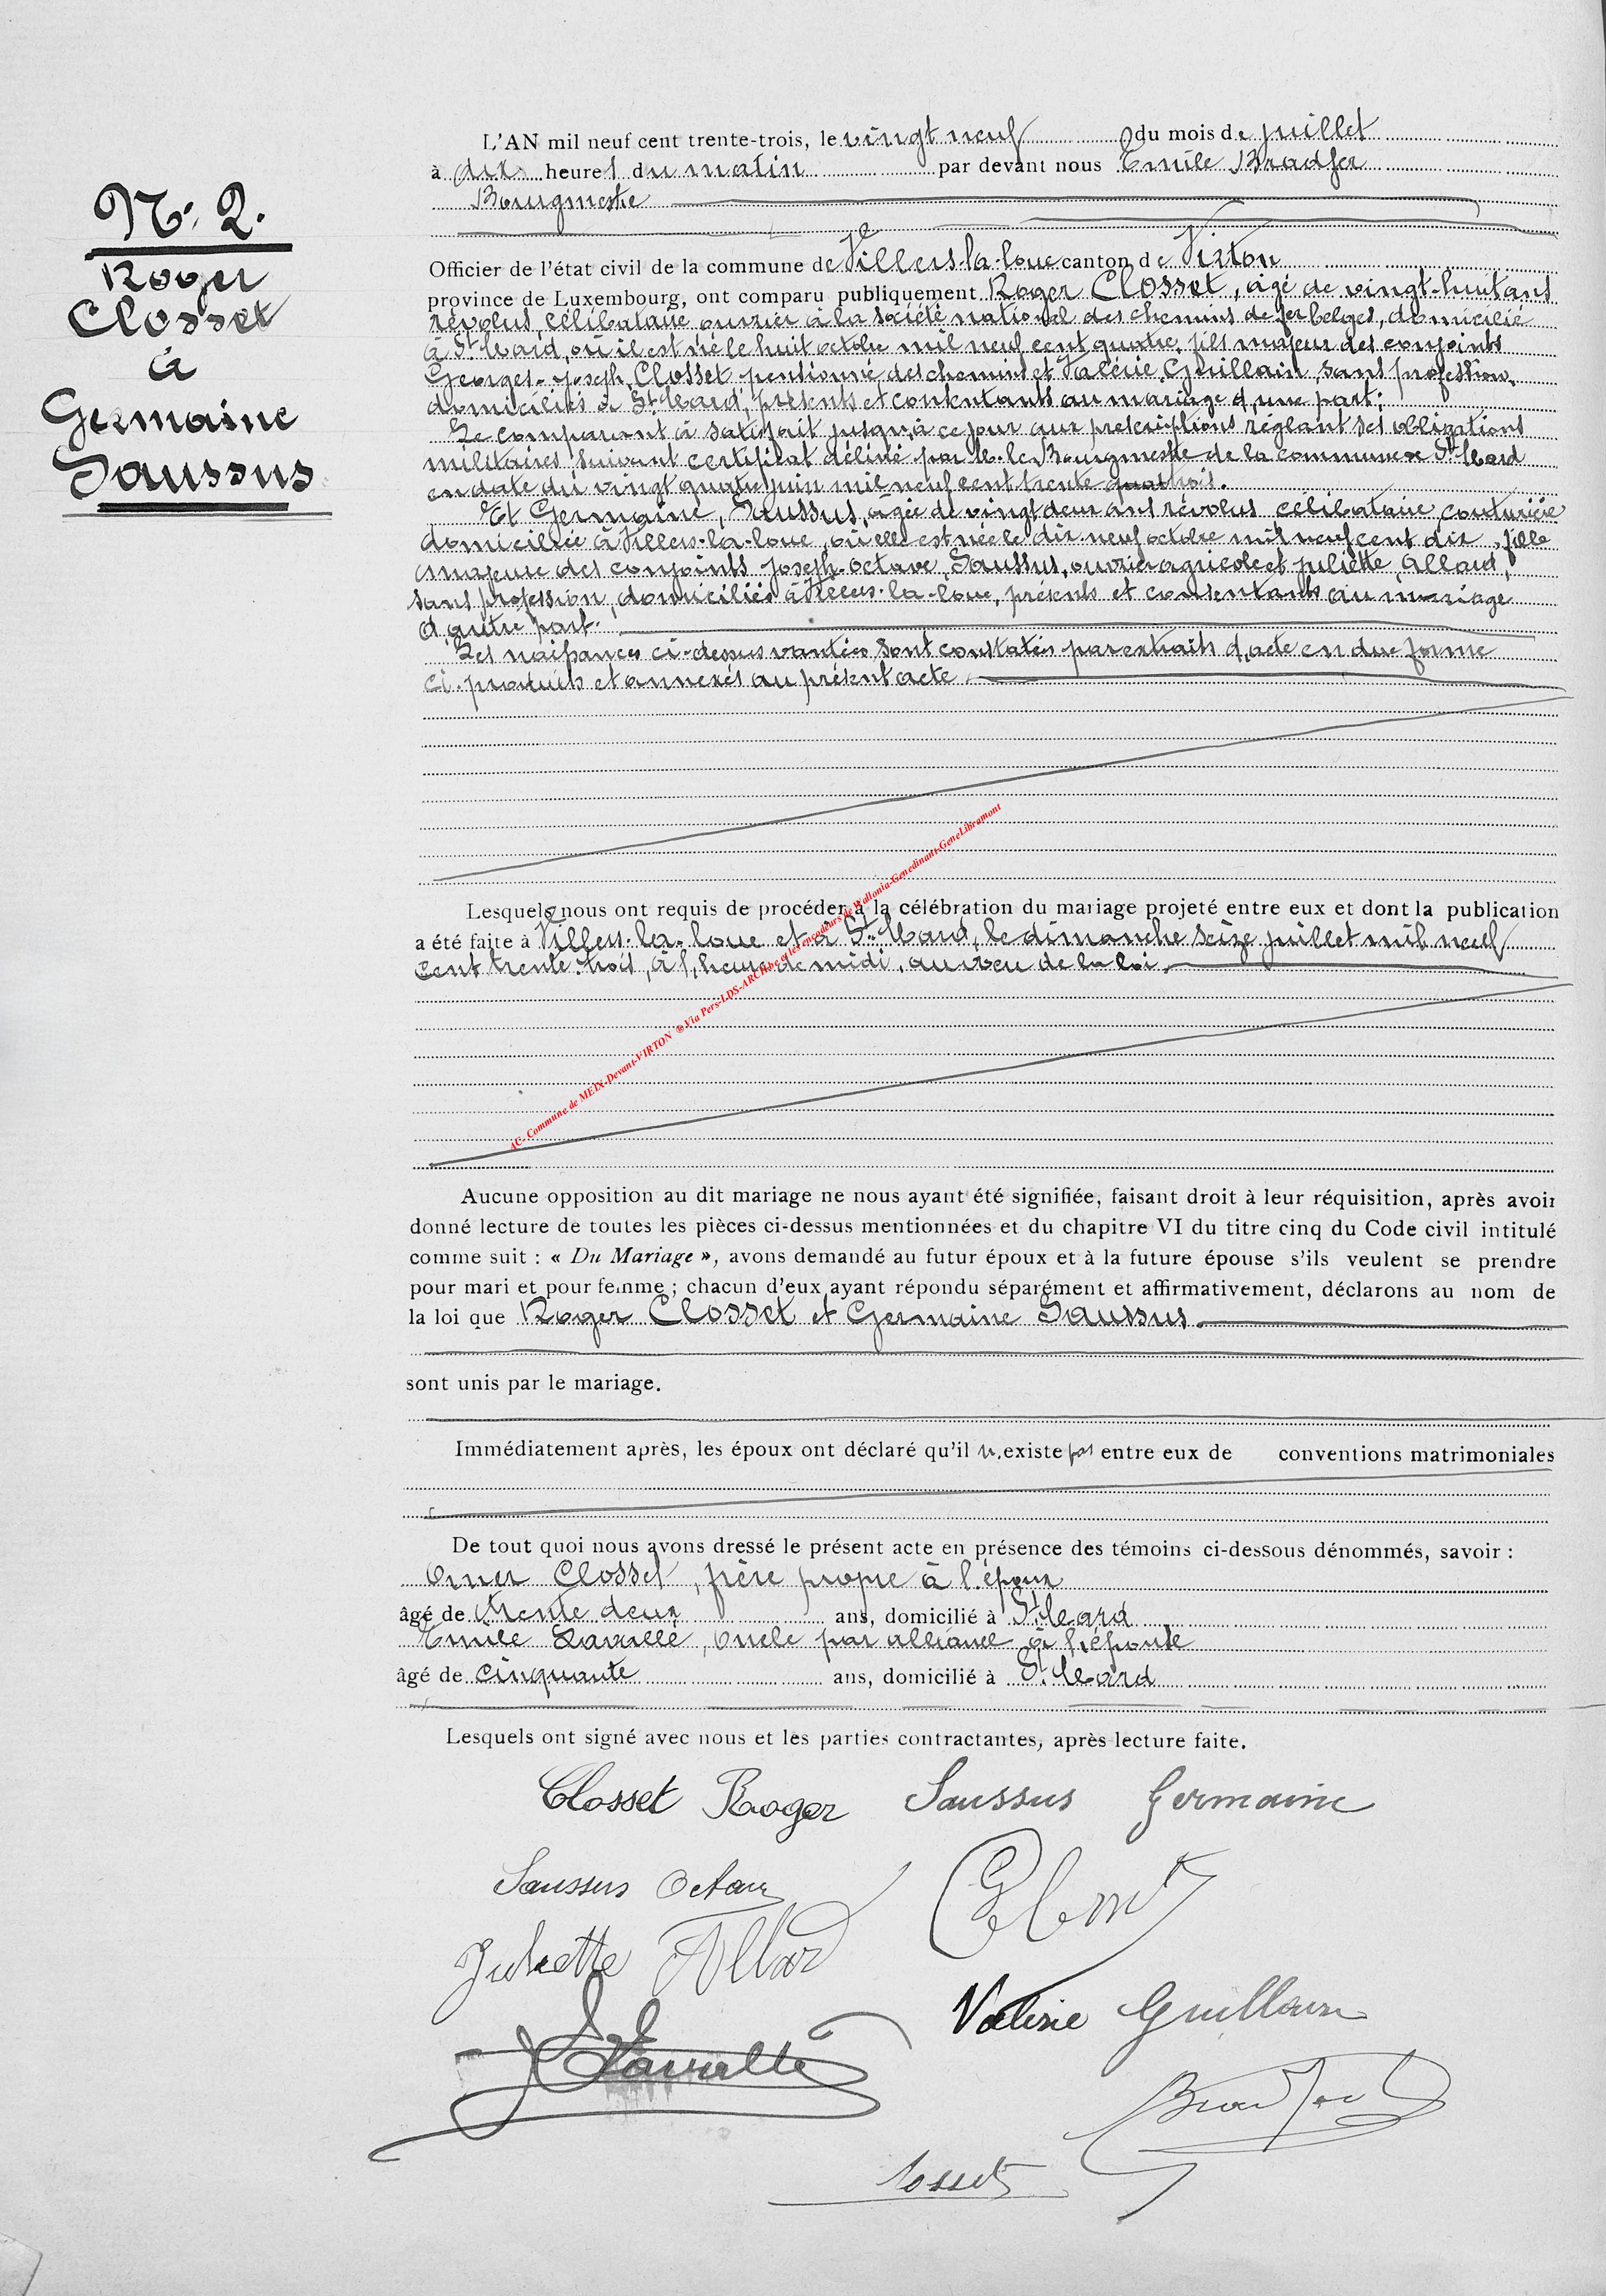 N° 2.
Roger
Closset
à
Germaine
Saussus
L'AN mil neuf cent trente-trois, le vingt neuf du mois de juillet
à dix heures du matin par devant nous Emile Bradfer
Bourgmestre
Officier de l'état civil de la commune de Villers-la-loue canton de Virton
province de Luxembourg, ont comparu publiquement Roger Closset, âgé de vingt-huit ans
révolus, célibataire ouvrier à la société national des chemins de fer belges, domicilié
à St Mard, où il est né le huit octobre mil neuf cent quatre, fils majeur des conjoints
Georges-Joseph, Closset pensionné des chemins et Valérie, Guillain, sans profession,
domiciliés à St Mard, présents et consentants au mariage d'une part;
Le comparant à satisfait jusqu'à ce jour aux prescriptions réglant ses obligations
militaires suivant certificat délivré par M. le Bourgmestre de la commune de St Mard
en date du vingt quatre juin mil neuf cent trente trois.
Et Germaine, Saussus, âgée de vingt deux ans révolus célibataire, couturière
domiciliée à Villers-la-loue, où elle est née le dix-neuf octobre mil neuf cent dix, fille
majeure des conjoints Joseph-Octave, Saussus, ouvrier agricole et Juliette, Allard,
sans profession, domiciliés à Villers-la-loue, présents et consentants au mariage
d'autre part.
Les naissances ci-dessus vantées sont constatées par extraits d'acte en due forme
ci-produits et annexés au présent acte.
Lesquels nous ont requis de procéder à la célébration du mariage projeté entre eux et dont la publication
a été faite à Villers-la-loue et à St Mard, le dimanche seize juillet mil neuf
cent trente-trois, à l'heure de midi, au vœu de la loi.
AC- Commune de MEIX-Devant-VIRTON ® Via Pers-LDS-ARCH.be et les encodeurs de Wallonia-Genedinant-GeneLibramont
Aucune opposition au dit mariage ne nous ayant été signifiée, faisant droit à leur réquisition, après avoir
donné lecture de toutes les pièces ci-dessus mentionnées et du chapitre VI du titre cinq du Code civil intitulé
comme suit : « Du Mariage », avons demandé au futur époux et à la future épouse s'ils veulent se prendre
pour mari et pour femme ; chacun d'eux ayant répondu séparément et affirmativement, déclarons au nom de
la loi que Roger Closset et Germaine Saussus.
sont unis par le mariage.
Immédiatement après, les époux ont déclaré qu'il n'existe pas entre eux de conventions matrimoniales
De tout quoi nous avons dressé le présent acte en présence des témoins ci-dessous dénommés, savoir :
Omer Closset, frère propre à l'époux
âgé de trente deux ans, domicilié à St Mard
Emile Lavallé, oncle par alliance à l'épouse
âgé de cinquante ans, domicilié à St Mard
Lesquels ont signé avec nous et les parties contractantes, après lecture faite.
Closset Roger Saussus Germaine
Saussus Octave
Juliette Allard
Valérie Guillain
Lavallé
Bradfer
Closset